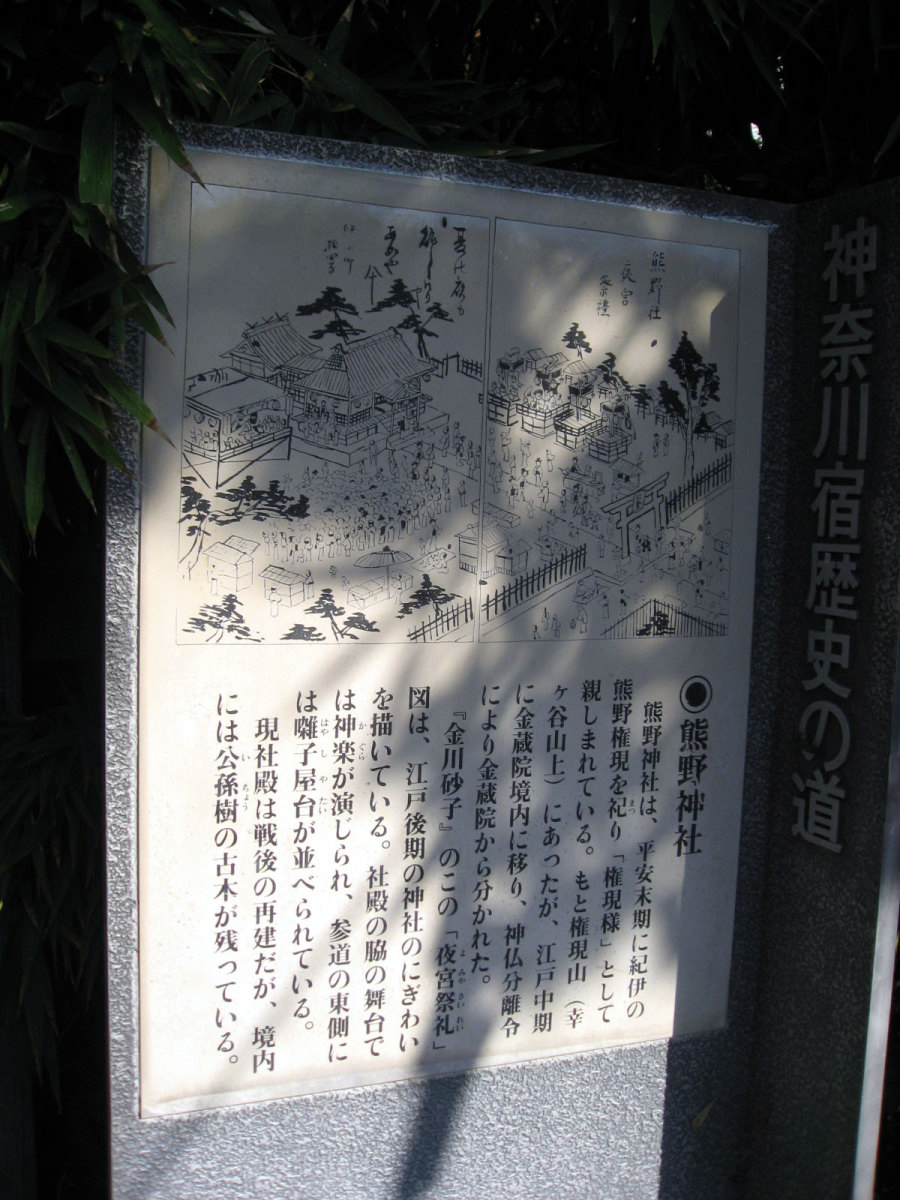 神奈川宿歴史の道
熊野社
夜宮
祭禮
◉熊野神社
熊野神社は、平安末期に紀伊の
熊野権現を祀り「権現様」として
親しまれている。もと権現山（幸
ヶ谷山上）にあったが、江戸中期
に金蔵院境内に移り、神仏分離令
により金蔵院から分かれた。
『金川砂子』のこの「夜宮祭礼」
図は、江戸後期の神社のにぎわい
を描いている。社殿の脇の舞台で
は神楽が演じられ、参道の東側に
は囃子屋台が並べられている。
現社殿は戦後の再建だが、境内
には公孫樹の古木が残っている。